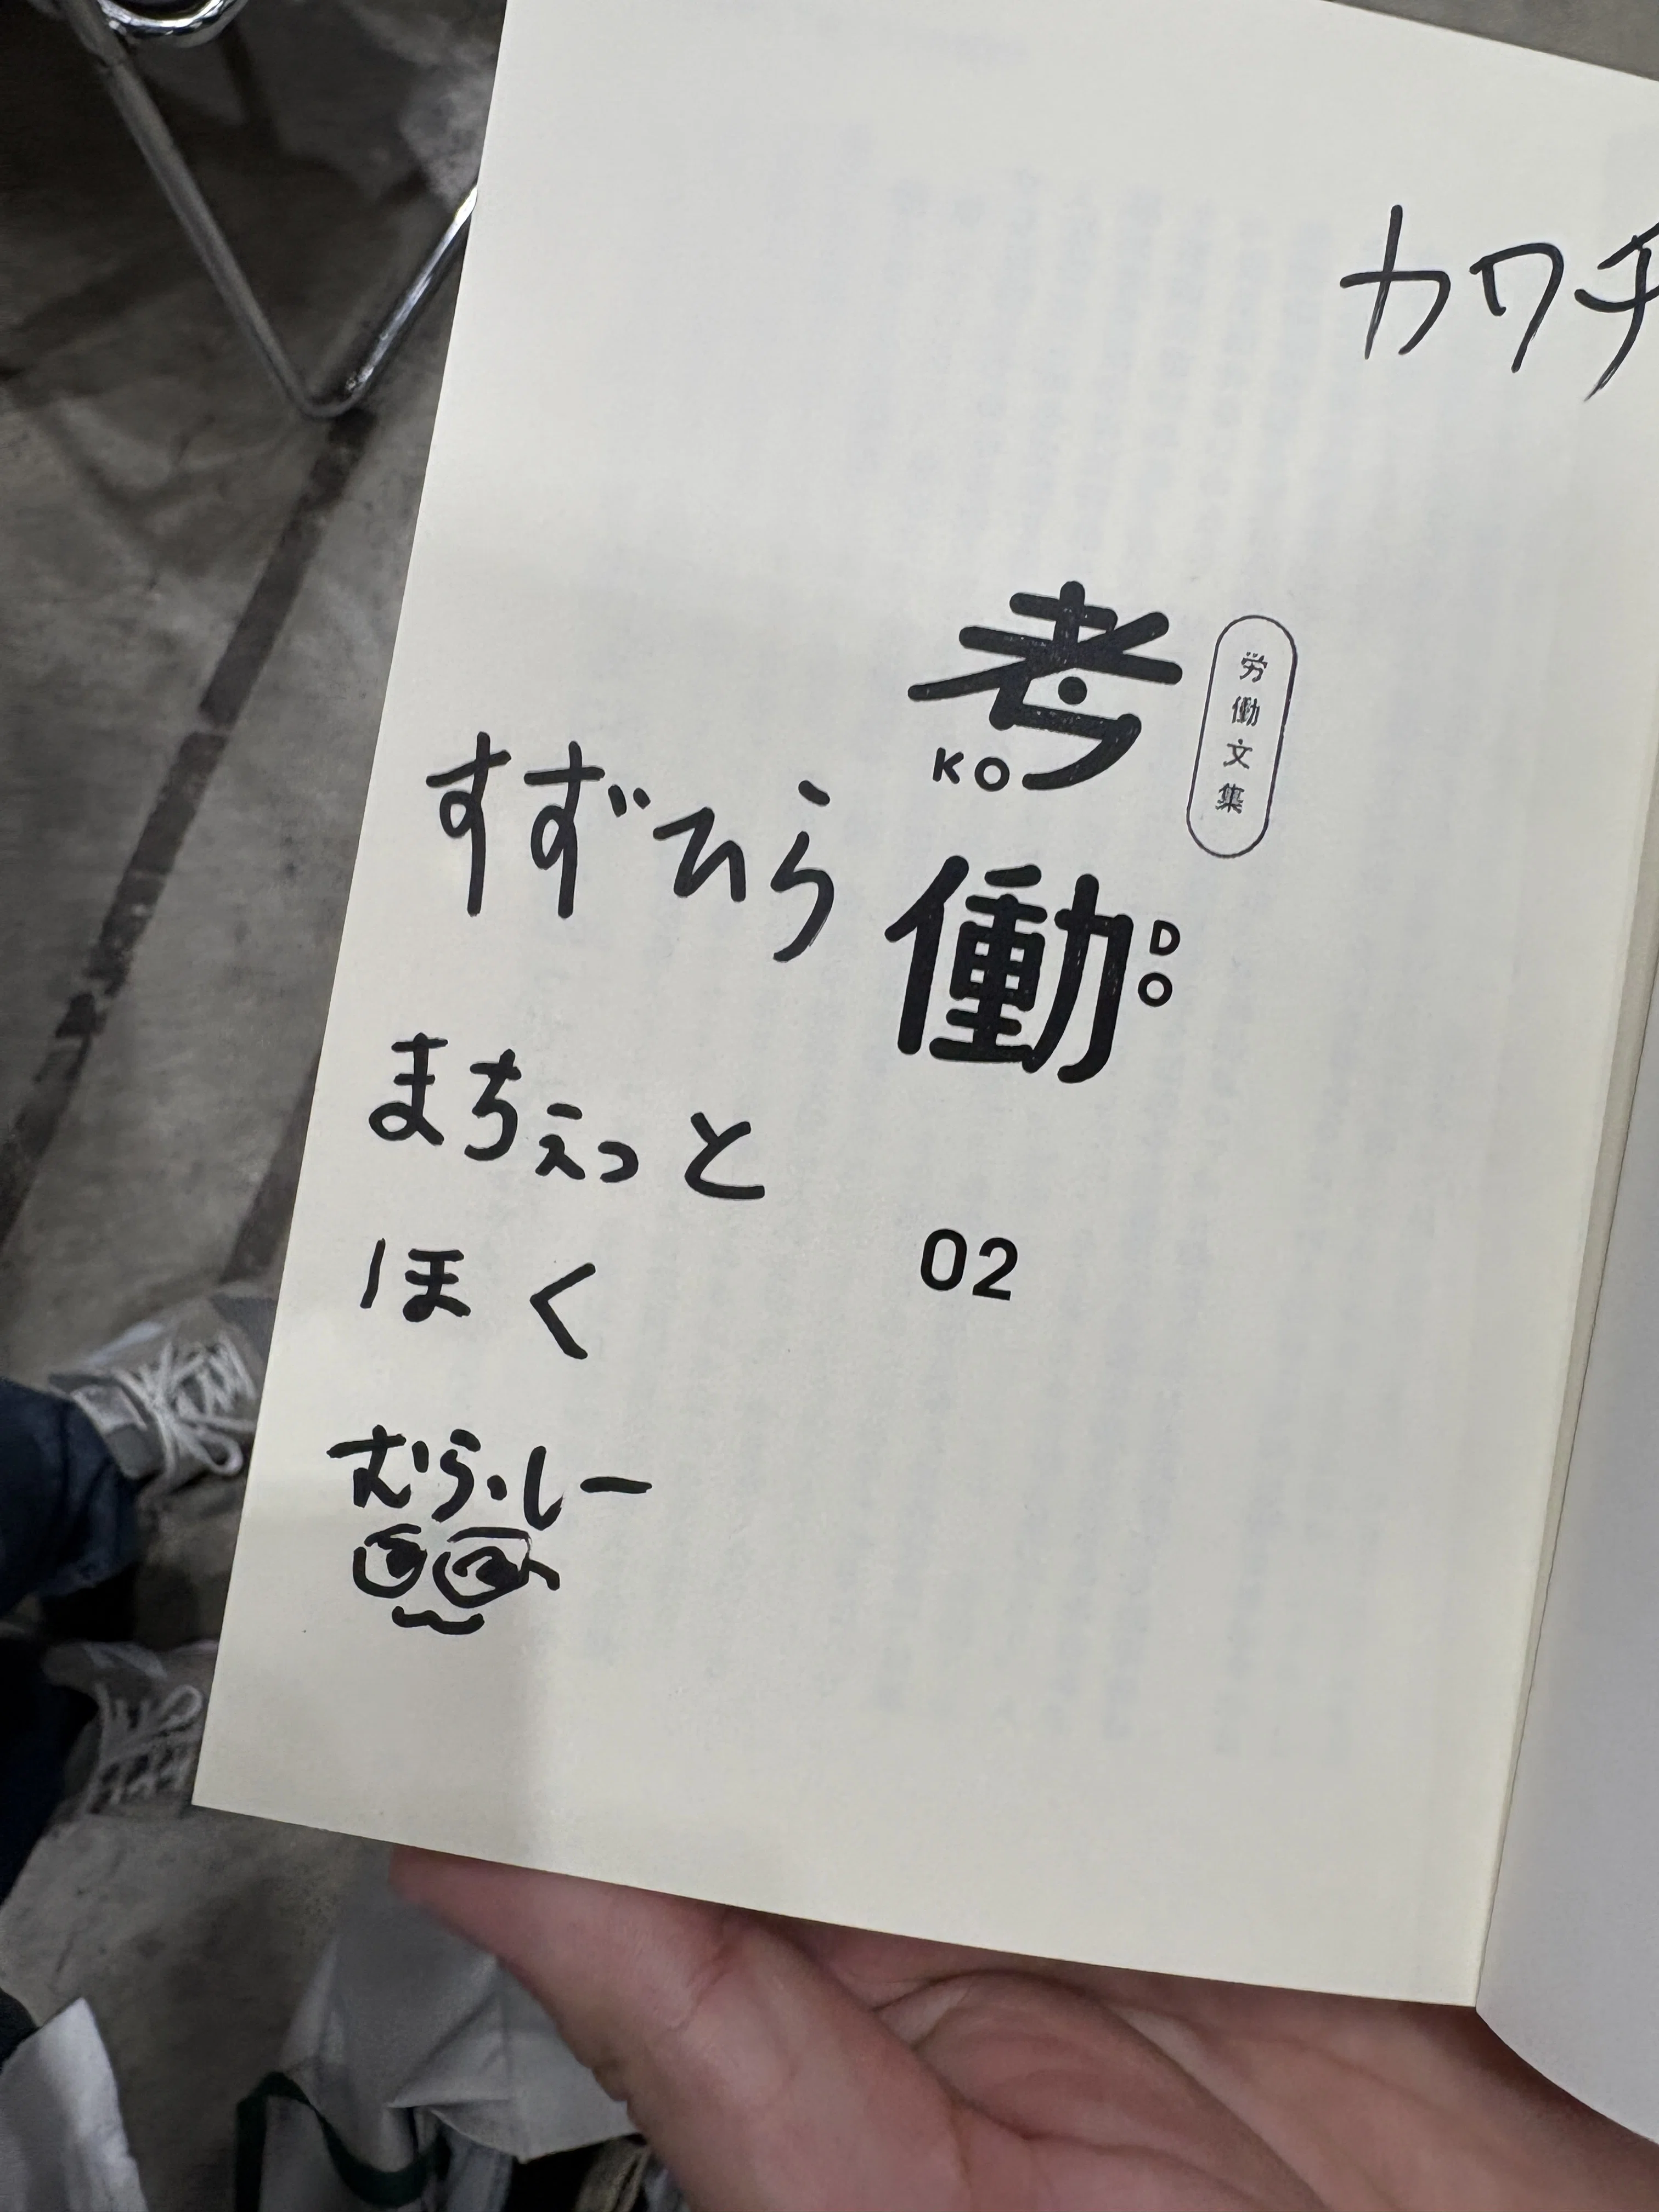 カワチ
労働文集
考
KO
働
DO
02
すずひら
まちぇっと
ほく
むらしー